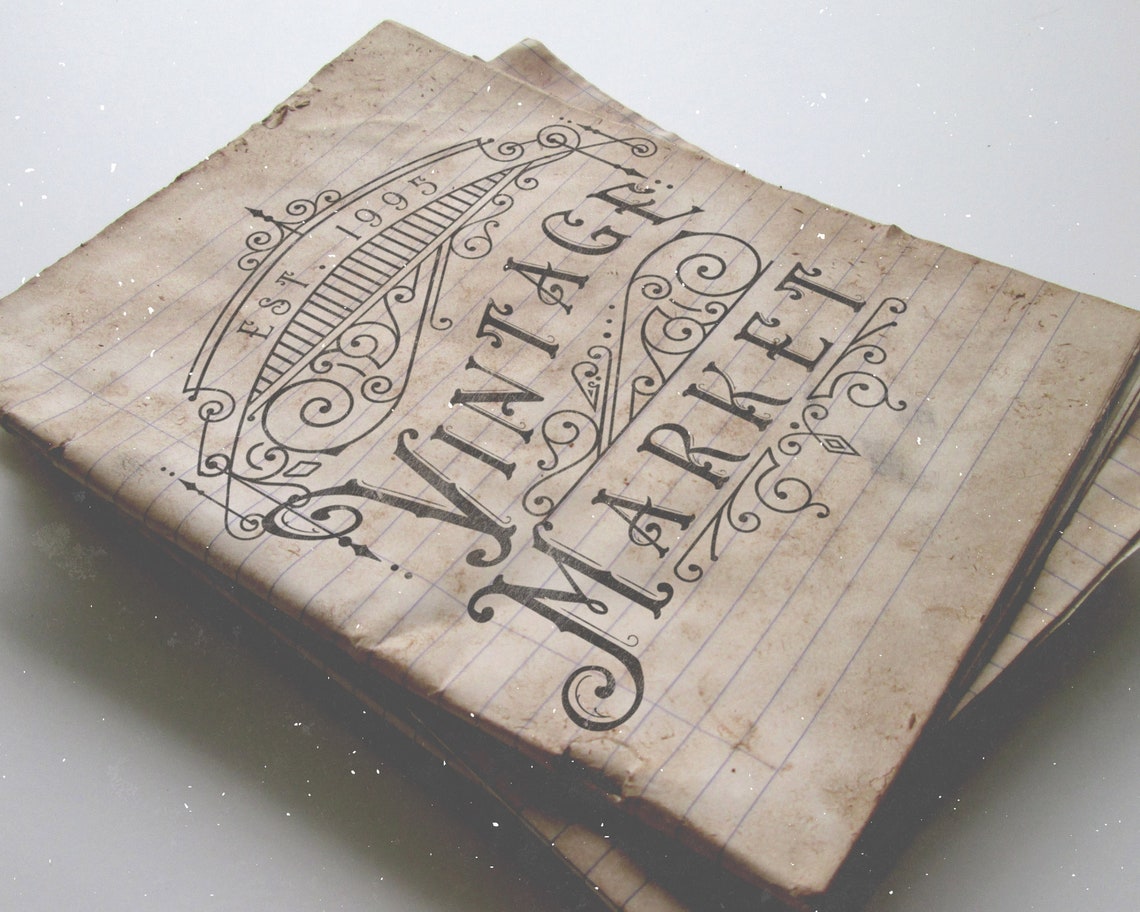 EST. 1995
VINTAGE
MARKET